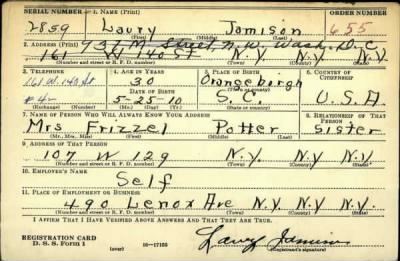 SERIAL NUMBER 1. NAME (Print) ORDER NUMBER
2859 Laury Jamison 655
(First) (Middle) (Last)
2. ADDRESS (Print)
937 M Street, N.W. Wash. D.C.
161 W 140 ST N.Y. N.Y. N.Y.
(Number and street or R. F. D. number) (Town) (County) (State)
3. TELEPHONE 4. AGE IN YEARS 5. PLACE OF BIRTH 6. COUNTRY OF CITIZENSHIP
161 W. 140 St 30 Orangeburgh
DATE OF BIRTH (Town or county)
#42 5-25-10 S.C. U.S.A
(Exchange) (Number) (Mo.) (Day) (Yr.) (State or country)
7. NAME OF PERSON WHO WILL ALWAYS KNOW YOUR ADDRESS 8. RELATIONSHIP OF THAT PERSON
Mrs Frizzel Potter Sister
(Mr., Mrs., Miss) (First) (Middle) (Last)
9. ADDRESS OF THAT PERSON
107 W 129 N.Y. N.Y N.Y
(Number and street or R. F. D. number) (Town) (County) (State)
10. EMPLOYER'S NAME
Self
11. PLACE OF EMPLOYMENT OR BUSINESS
490 Lenox Ave N.Y. N.Y N.Y.
(Number and street or R. F. D. number) (Town) (County) (State)
I AFFIRM THAT I HAVE VERIFIED ABOVE ANSWERS AND THAT THEY ARE TRUE.
REGISTRATION CARD
D. S. S. Form 1 (over) 16—17105 Laury Jamison
(Registrant's signature)